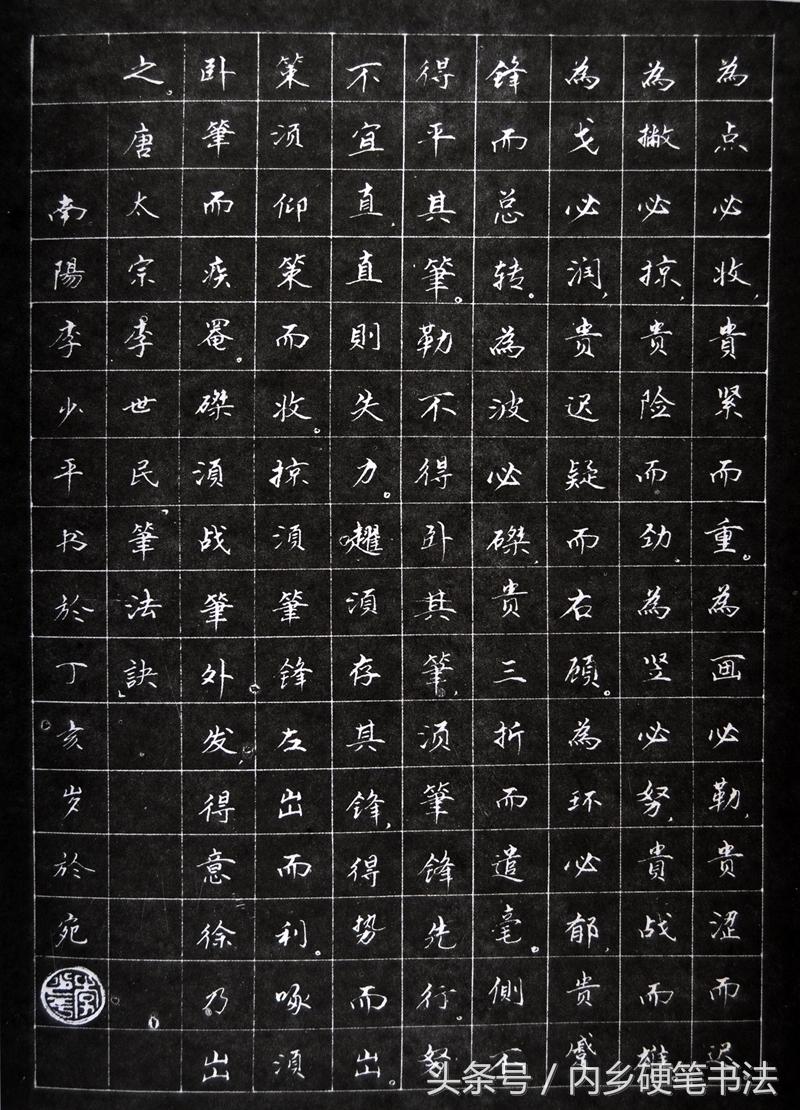 为点必收,貴紧而重。為画必勒,贵涩而迟
為撇必掠,贵险而劲,為竖必努,貴战而雄
為戈必润,贵迟疑而右顾。為环必郁,贵而蹙
鋒而总转。為波必磔,贵三折而遣毫。側不
得平其筆。勒不得卧其筆,须筆鋒先行。努
不宜直,直則失力。趯須存其鋒,得势而出。
策須仰策而收。掠須筆锋左出而利。啄須
卧筆而疾罨。磔須战筆外发,得意徐乃出
之。唐太宗李世民「筆法訣」
南陽李少平书於丁亥岁於宛
头条号 / 内乡硬笔书法